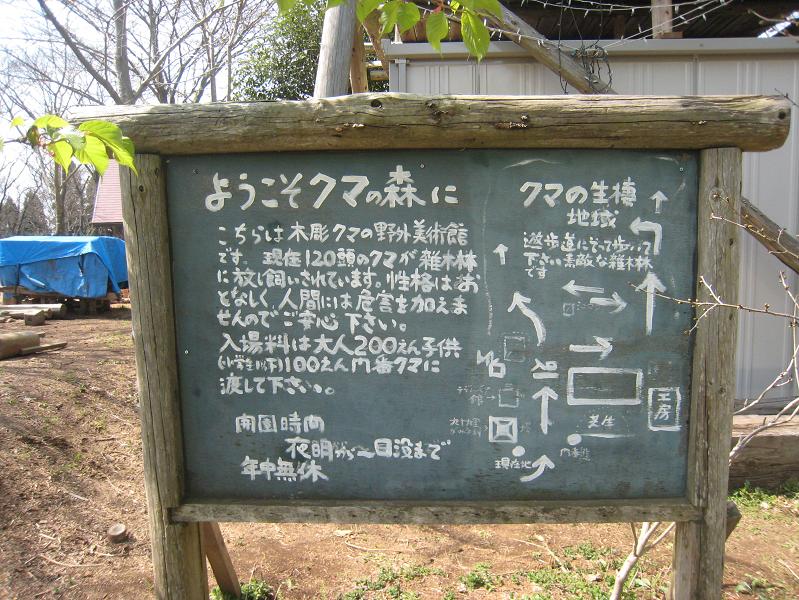 ようこそクマの森に
こちらは木彫クマの野外美術館
です。現在120頭のクマが雑木林
に放し飼いされています。性格はお
となしく、人間には危害を加えま
せんのでご安心下さい。
入場料は大人200えん子供
(小学生以下)100えん門番クマに
渡して下さい。
開園時間
夜明から〜日没まで
年中無休
クマの生棲
地域
遊歩道にそって歩いて
下さい素敵な雑木林
です
工房
芝生
現在地